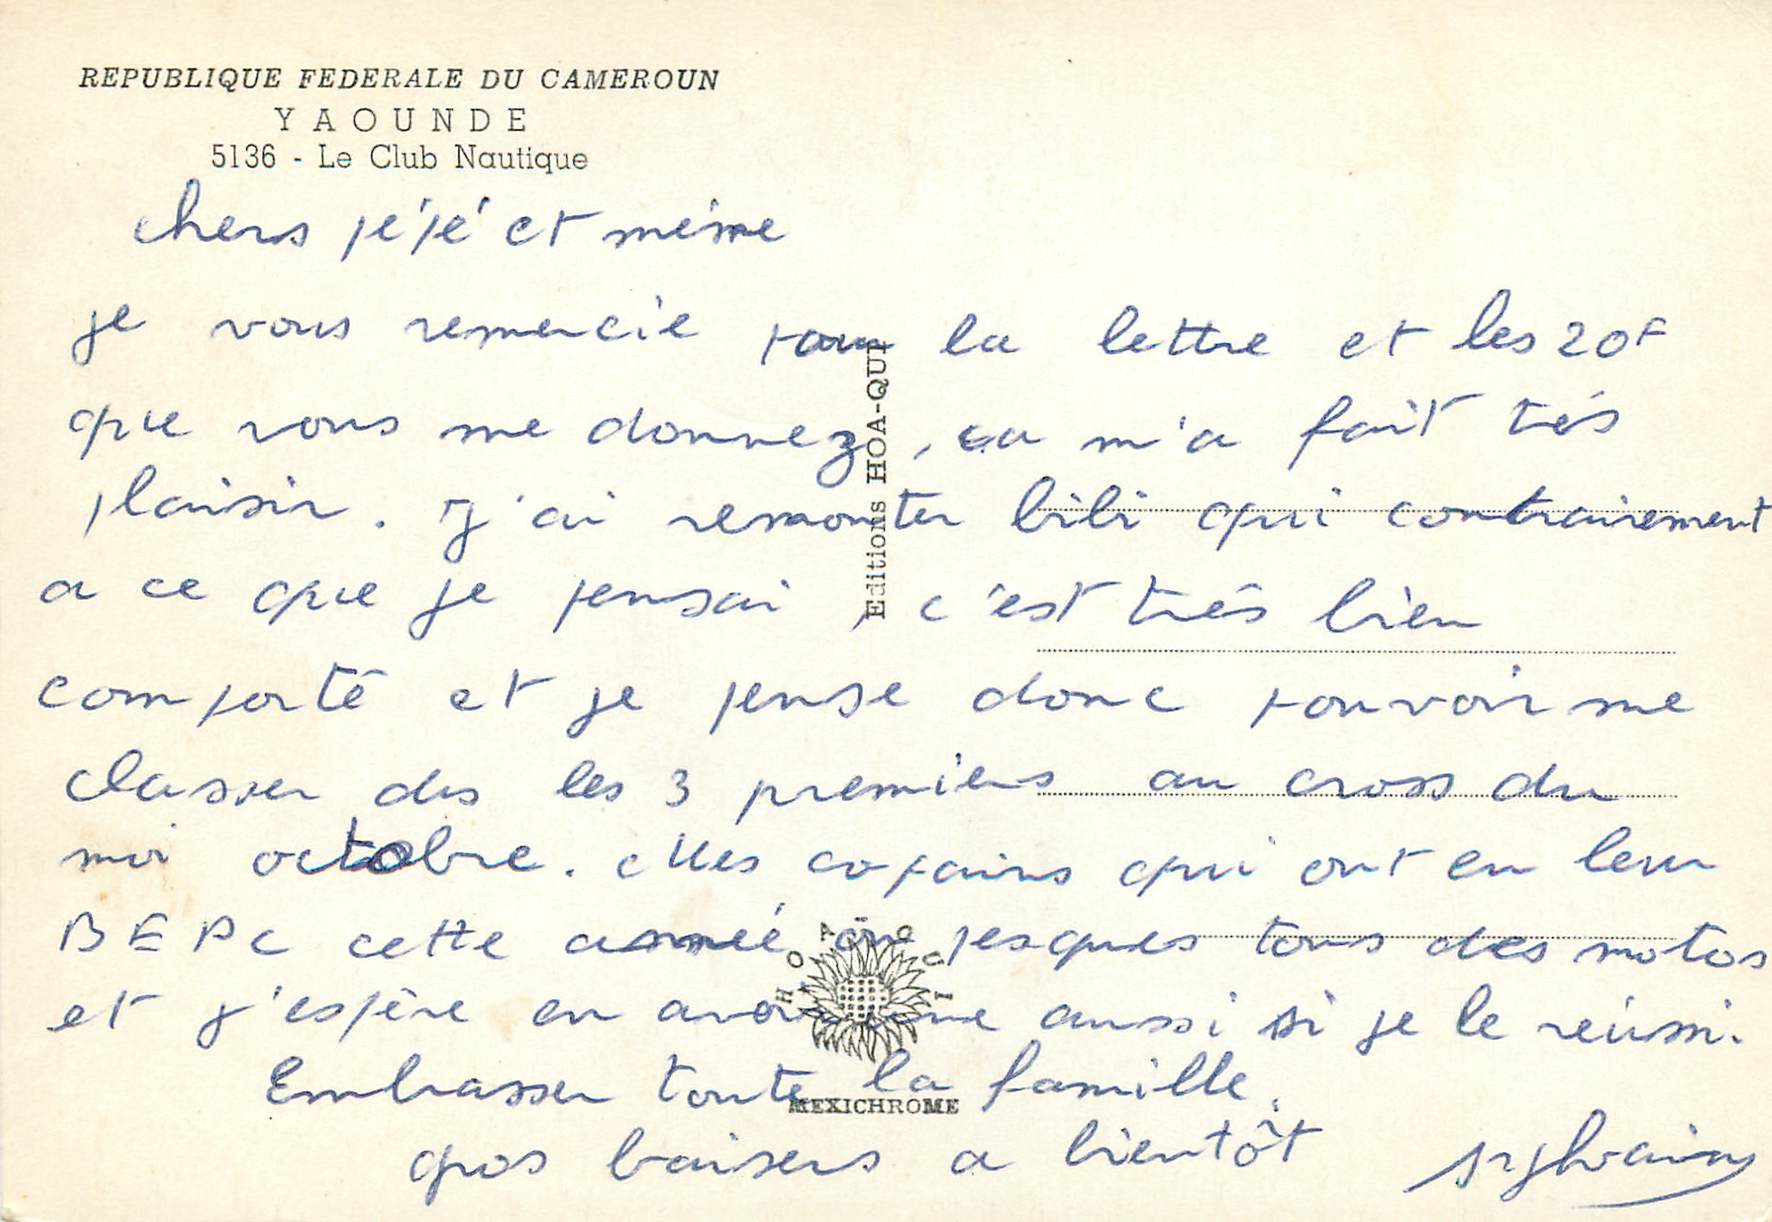 REPUBLIQUE FEDERALE DU CAMEROUN
YAOUNDE
5136 - Le Club Nautique
chers pépé et mémé
je vous remercie pour la lettre et les 20F
que vous me donnez, ca m'a fait très
plaisir. J'ai remonter bibi qui contrairement
a ce que je pensai, c'est très bien
comporté et je pense donc pouvoir me
classer des les 3 premiers au cross du
moi octobre. Mes copains qui ont eu leur
BEPC cette année on pesques tous des motos
et j'espère en avoir une aussi si je le réussi.
Embrasser toute la famille.
gros baisers a bientôt sylvain
Editions HOA-QUI
HOA-QUI
MEXICHROME